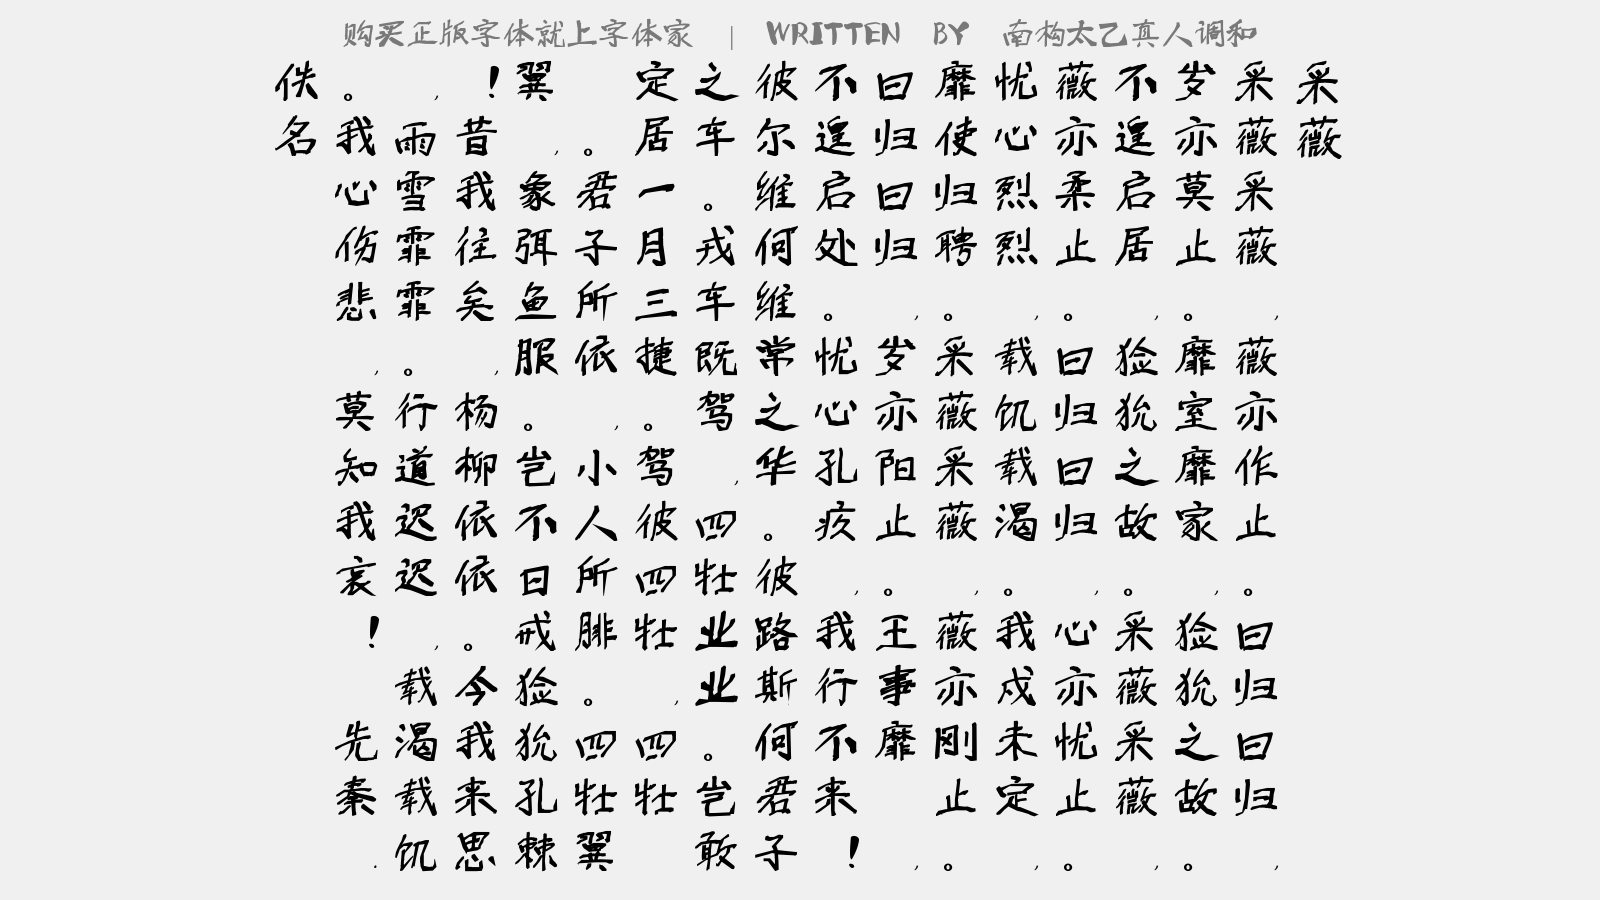 购买正版字体就上字体家 | WRITTEN BY 南构太乙真人调和
采薇
采薇采薇，薇亦作止。曰归曰归，
岁亦莫止。靡室靡家，猃狁之故。
不遑启居，猃狁之故。采薇采薇，
薇亦柔止。曰归曰归，心亦忧止。
忧心烈烈，载饥载渴。我戍未定，
靡使归聘。采薇采薇，薇亦刚止。
曰归曰归，岁亦阳止。王事靡 ，
不遑启处。忧心孔疚，我行不来！
彼尔维何维常之华。彼路斯何君子
之车。戎车既驾，四牡业业。岂敢
定居一月三捷。驾彼四牡，四牡
。君子所依，小人所腓。四牡翼
翼，象弭鱼服。岂不日戒，猃狁孔棘
！昔我往矣，杨柳依依。今我来思
，雨雪霏霏。行道迟迟，载渴载饥
。我心伤悲，莫知我哀！ 先秦.
佚名